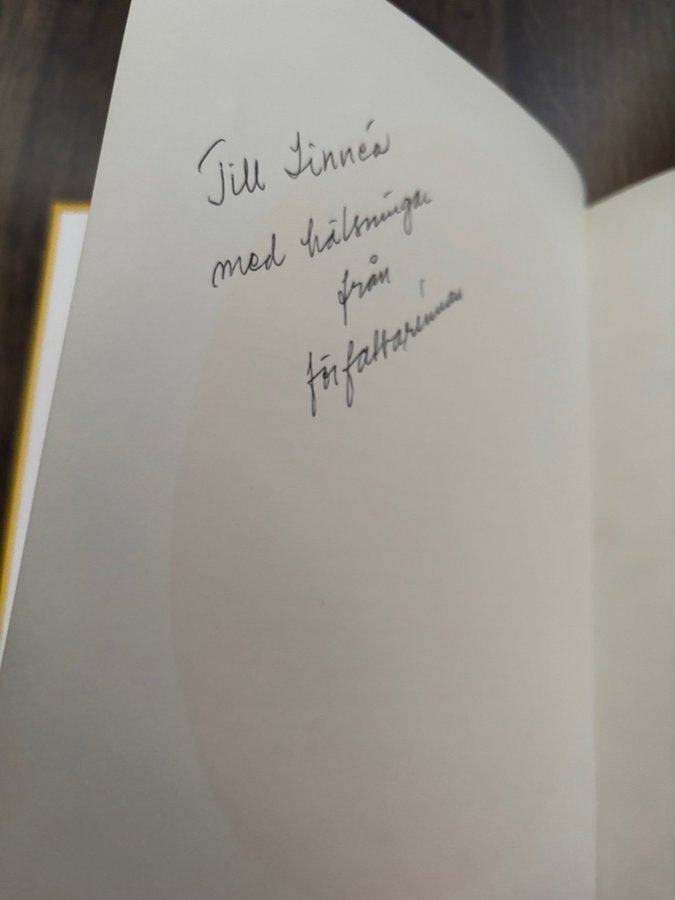 Till Linnéa
med hälsningar
från
författarinnan